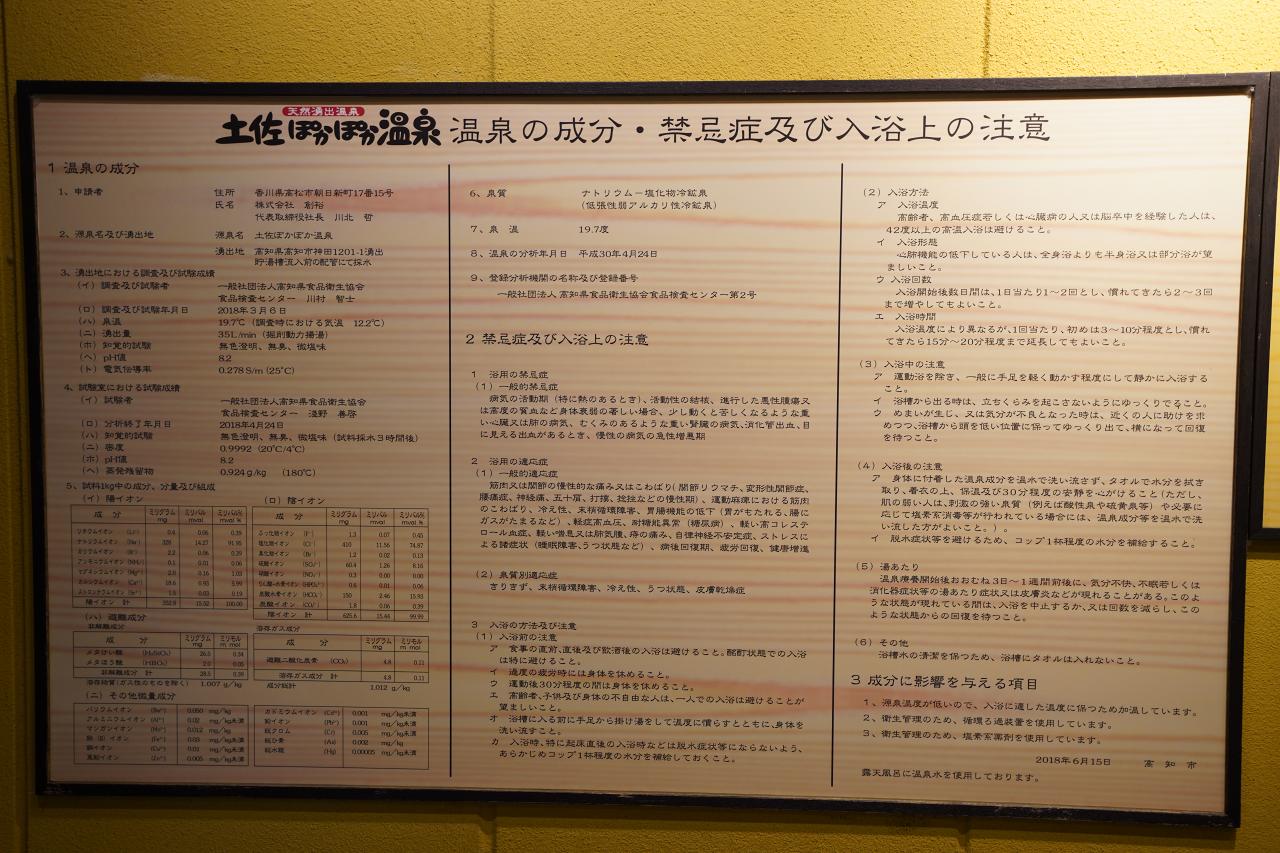 天然湧出温泉
土佐ぽかぽか温泉 温泉の成分・禁忌症及び入浴上の注意
1 温泉の成分
1、申請者 住所 香川県高松市朝日新町17番15号
氏名 株式会社 創裕
代表取締役社長 川北 哲
2、源泉名及び湧出地 源泉名 土佐ぽかぽか温泉
湧出地 高知県高知市神田1201-1湧出
貯湯槽流入前の配管にて採水
3、湧出地における調査及び試験成績
(イ)調査及び試験者 一般社団法人高知県食品衛生協会
食品検査センター 川村 智士
(ロ)調査及び試験年月日 2018年3月6日
(ハ)泉温 19.7℃(調査時における気温 12.2℃)
(ニ)湧出量 35L/min(掘削動力揚湯)
(ホ)知覚的試験 無色澄明、無臭、微塩味
(ヘ)pH値 8.2
(ト)電気伝導率 0.278 S/m (25℃)
4、試験室における試験成績
(イ)試験者 一般社団法人高知県食品衛生協会
食品検査センター 淺野 善啓
(ロ)分析終了年月日 2018年4月24日
(ハ)知覚的試験 無色澄明、無臭、微塩味(試料採水3時間後)
(ニ)密度 0.9992(20℃/4℃)
(ホ)pH値 8.2
(ヘ)蒸発残留物 0.924g/kg (180℃)
5、試料1kg中の成分、分量及び組成
(イ)陽イオン
成 分 ミリグラム mg ミリバル mval ミリバル% mval%
リチウムイオン (Li⁺) 0.4 0.06 0.39
ナトリウムイオン (Na⁺) 328 14.27 91.95
カリウムイオン (K⁺) 2.2 0.06 0.39
アンモニウムイオン (NH₄⁺) 0.1 0.01 0.06
マグネシウムイオン (Mg²⁺) 2.0 0.16 1.03
カルシウムイオン (Ca²⁺) 18.6 0.93 5.99
ストロンチウムイオン (Sr²⁺) 1.6 0.03 0.19
陽イオン 計 352.9 15.52 100.00
(ロ)陰イオン
成 分 ミリグラム mg ミリバル mval ミリバル% mval%
ふっ化物イオン (F⁻) 1.3 0.07 0.45
塩化物イオン (Cl⁻) 410 11.56 74.87
臭化物イオン (Br⁻) 1.2 0.02 0.13
硫酸イオン (SO₄²⁻) 60.4 1.26 8.16
硝酸イオン (NO₃⁻) 0.3 0.00 0.00
りん酸一水素イオン (HPO₄²⁻) 0.6 0.01 0.06
炭酸水素イオン (HCO₃⁻) 150 2.46 15.93
炭酸イオン (CO₃²⁻) 1.8 0.06 0.39
陰イオン 計 625.6 15.44 99.99
(ハ)遊離成分
非解離成分
成 分 ミリグラム mg ミリモル m mol
メタけい酸 (H₂SiO₃) 26.5 0.34
メタほう酸 (HBO₂) 2.0 0.05
非解離成分 計 28.5 0.39
溶存物質(ガス性のものを除く) 1.007 g/kg
溶存ガス成分
成 分 ミリグラム mg ミリモル m mol
遊離二酸化炭素 (CO₂) 4.8 0.11
溶存ガス成分 計 4.8 0.11
成分総計 1.012 g/kg
(ニ)その他微量成分
バリウムイオン (Ba²⁺) 0.050 mg/kg
アルミニウムイオン (Al³⁺) 0.02 mg/kg未満
マンガンイオン (Mn²⁺) 0.012 mg/kg
鉄(Ⅱ)イオン (Fe²⁺) 0.03 mg/kg未満
銅イオン (Cu²⁺) 0.01 mg/kg未満
亜鉛イオン (Zn²⁺) 0.005 mg/kg未満
カドミウムイオン (Cd²⁺) 0.001 mg/kg未満
鉛イオン (Pb²⁺) 0.001 mg/kg未満
総クロム (Cr) 0.005 mg/kg未満
総ひ素 (As) 0.002 mg/kg
総水銀 (Hg) 0.00005 mg/kg未満
6、泉質 ナトリウム-塩化物冷鉱泉
(低張性弱アルカリ性冷鉱泉)
7、泉 温 19.7度
8、温泉の分析年月日 平成30年4月24日
9、登録分析機関の名称及び登録番号
一般社団法人 高知県食品衛生協会食品検査センター第2号
2 禁忌症及び入浴上の注意
1 浴用の禁忌症
(1)一般的禁忌症
病気の活動期(特に熱のあるとき)、活動性の結核、進行した悪性腫瘍又
は高度の貧血など身体衰弱の著しい場合、少し動くと苦しくなるような重
い心臓又は肺の病気、むくみのあるような重い腎臓の病気、消化管出血、目
に見える出血があるとき、慢性の病気の急性増悪期
2 浴用の適応症
(1)一般的適応症
筋肉又は関節の慢性的な痛み又はこわばり(関節リウマチ、変形性関節症、
腰痛症、神経痛、五十肩、打撲、捻挫などの慢性期)、運動麻痺における筋肉
のこわばり、冷え性、末梢循環障害、胃腸機能の低下(胃がもたれる、腸に
ガスがたまるなど)、軽症高血圧、耐糖能異常(糖尿病)、軽い高コレステ
ロール血症、軽い喘息又は肺気腫、痔の痛み、自律神経不安定症、ストレスに
よる諸症状(睡眠障害、うつ状態など)、病後回復期、疲労回復、健康増進
(2)泉質別適応症
きりきず、末梢循環障害、冷え性、うつ状態、皮膚乾燥症
3 入浴の方法及び注意
(1)入浴前の注意
ア 食事の直前、直後及び飲酒後の入浴は避けること。酩酊状態での入浴
は特に避けること。
イ 過度の疲労時には身体を休めること。
ウ 運動後30分程度の間は身体を休めること。
エ 高齢者、子供及び身体の不自由な人は、一人での入浴は避けることが
望ましいこと。
オ 浴槽に入る前に手足から掛け湯をして温度に慣らすとともに、身体を
洗い流すこと。
カ 入浴時、特に起床直後の入浴時などは脱水症状等にならないよう、
あらかじめコップ1杯程度の水分を補給しておくこと。
(2)入浴方法
ア 入浴温度
高齢者、高血圧症若しくは心臓病の人又は脳卒中を経験した人は、
42度以上の高温入浴は避けること。
イ 入浴形態
心肺機能の低下している人は、全身浴よりも半身浴又は部分浴が望
ましいこと。
ウ 入浴回数
入浴開始後数日間は、1日当たり1~2回とし、慣れてきたら2~3回
まで増やしてもよいこと。
エ 入浴時間
入浴温度により異なるが、1回当たり、初めは3~10分程度とし、慣れ
てきたら15分~20分程度まで延長してもよいこと。
(3)入浴中の注意
ア 運動浴を除き、一般に手足を軽く動かす程度にして静かに入浴する
こと。
イ 浴槽から出る時は、立ちくらみを起こさないようにゆっくりでること。
ウ めまいが生じ、又は気分が不良となった時は、近くの人に助けを求
めつつ、浴槽から頭を低い位置に保ってゆっくり出て、横になって回復
を待つこと。
(4)入浴後の注意
ア 身体に付着した温泉成分を温水で洗い流さず、タオルで水分を拭き
取り、着衣の上、保温及び30分程度の安静を心がけること(ただし、
肌の弱い人は、刺激の強い泉質(例えば酸性泉や硫黄泉等)や必要に
応じて塩素系消毒等が行われている場合には、温泉成分等を温水で洗
い流した方がよいこと。)。
イ 脱水症状等を避けるため、コップ1杯程度の水分を補給すること。
(5)湯あたり
温泉療養開始後おおむね3日~1週間前後に、気分不快、不眠若しくは
消化器症状等の湯あたり症状又は皮膚炎などが現れることがある。このよ
うな状態が現れている間は、入浴を中止するか、又は回数を減らし、この
ような状態からの回復を待つこと。
(6)その他
浴槽水の清潔を保つため、浴槽にタオルは入れないこと。
3 成分に影響を与える項目
1、源泉温度が低いので、入浴に適した温度に保つため加温しています。
2、衛生管理のため、循環ろ過装置を使用しています。
3、衛生管理のため、塩素系薬剤を使用しています。
2018年6月15日 高知市
露天風呂に温泉水を使用しております。